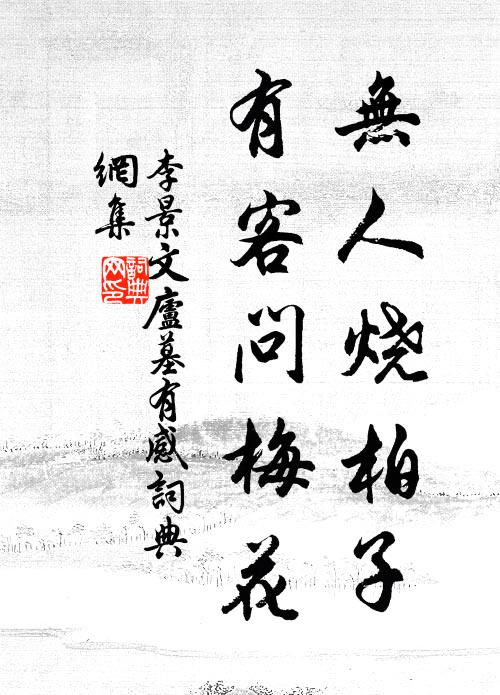 無人烧柏子
有客問梅花
李景文廬墓有感詞典
網集
詞典
网印